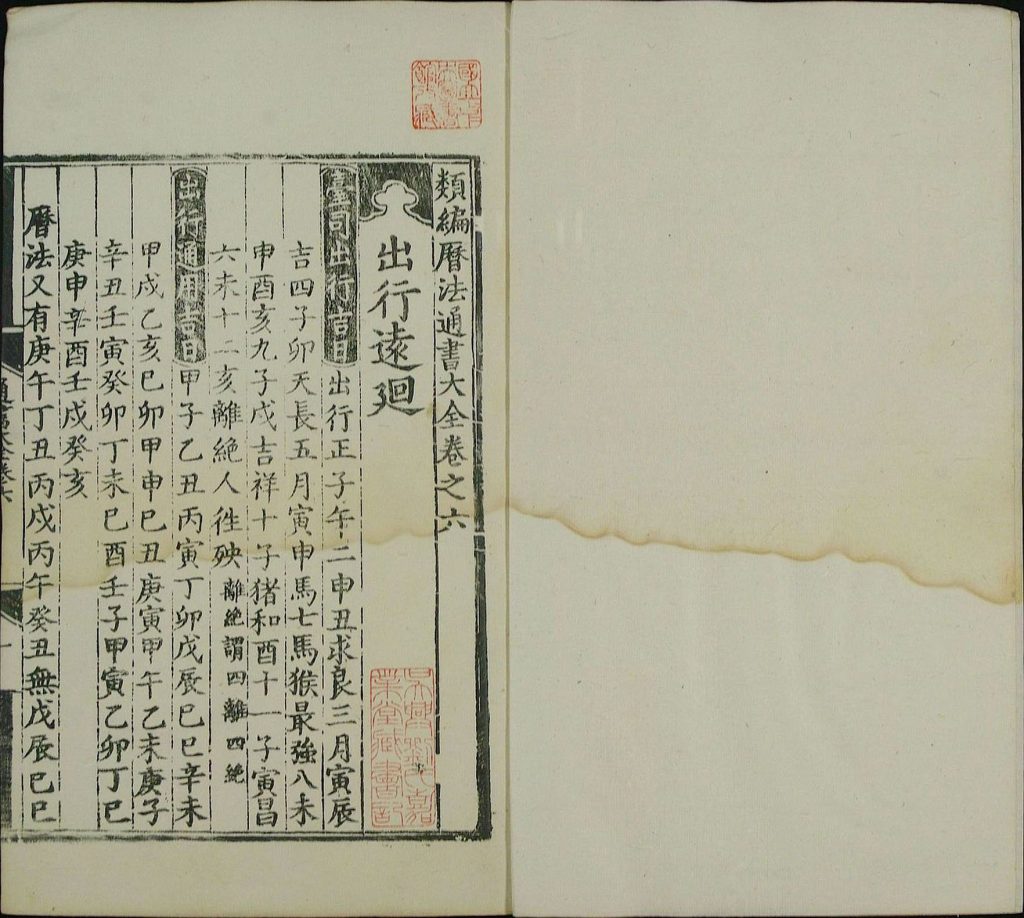 類編曆法通書大全卷之六
出行遠廻
臺司出行吉日 出行正子午二申丑求良三月寅辰
吉四子卯天長五月寅申馬七馬猴最強八未
申酉亥九子戌吉祥十子猪和酉十一子寅昌
六未十二亥離絶人徃殃離絶謂四離四絶
出行通用吉日 甲子乙丑丙寅丁卯戊辰巳巳辛未
甲戌乙亥巳卯甲申巳丑庚寅甲午乙未庚子
辛丑壬寅癸卯丁未巳酉壬子甲寅乙卯丁巳
庚申辛酉壬戌癸亥
曆法又有庚午丁丑丙戌丙午癸丑無戊辰巳巳
吳興劉氏嘉
業堂藏書記